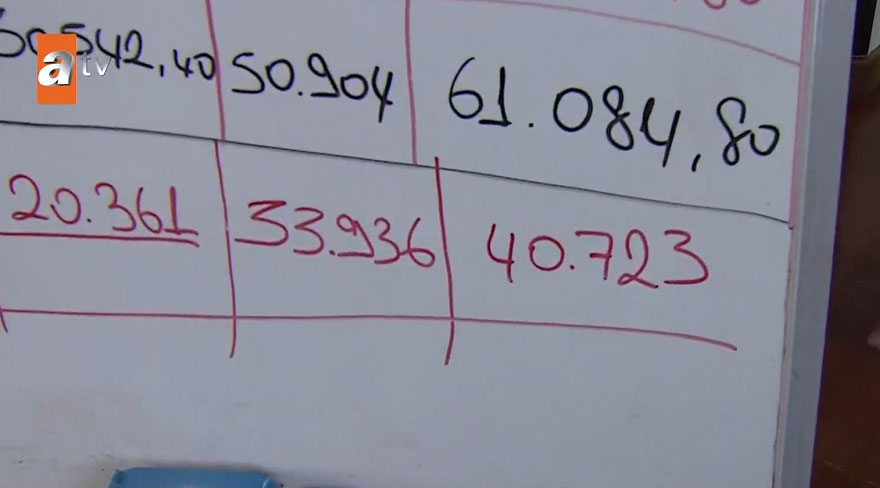 atv
542,40 50.904 61.084,80
20.361 33.936 40.723